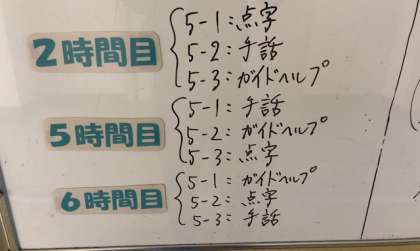 2時間目
5-1:点字
5-2:手話
5-3:ガイドヘルプ
5時間目
5-1:手話
5-2:ガイドヘルプ
5-3:点字
6時間目
5-1:ガイドヘルプ
5-2:点字
5-3:手話